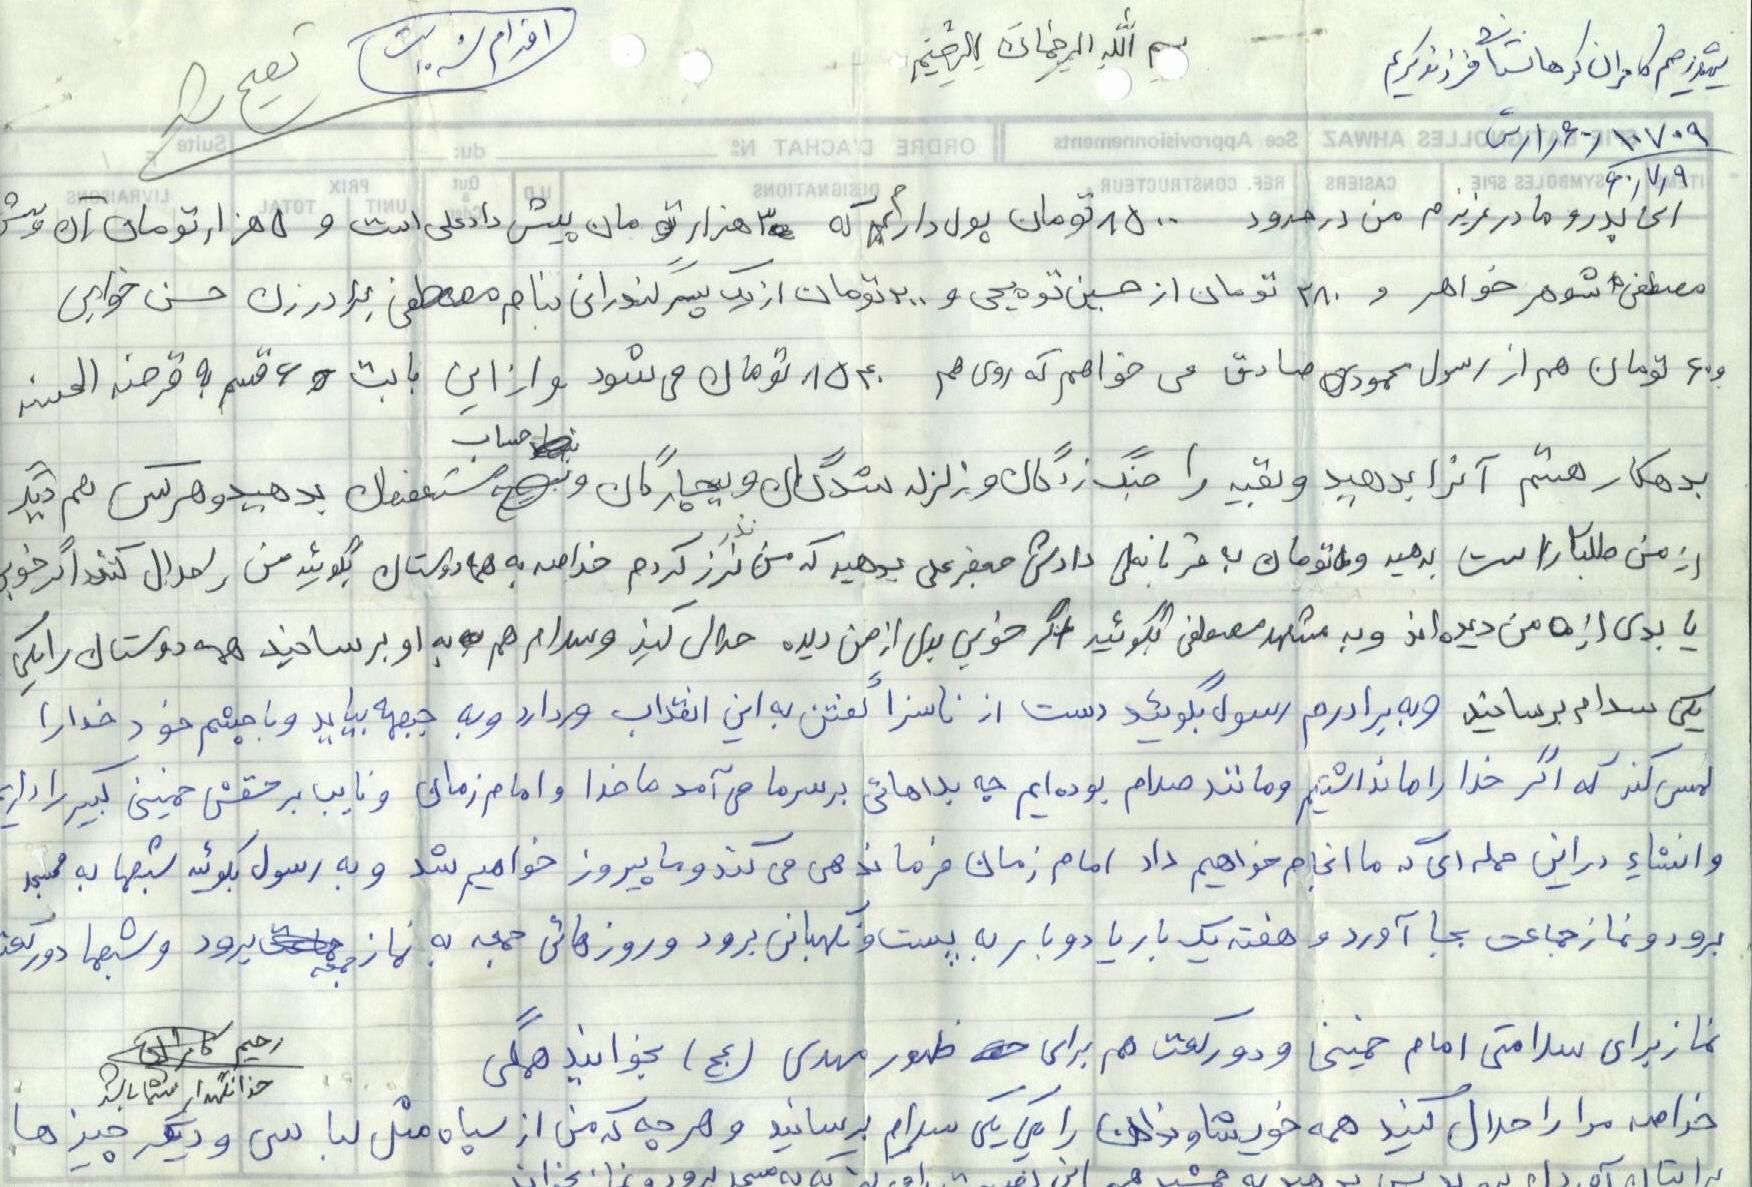 بسم الله الرحمان الرحیم
اقدام شده است
تصحیح شد
شهید رحیم کامران کوهانستانی فرزند کریم
ORDRE D'ACHAT Nº du: Suite
AHWAZ Sce Approvisionnements
SYMBOLES SPIE CASIERS REF. CONSTRUCTEUR DESIGNATIONS PRIX UNIT TOTAL LIVRAISONS
۶۰/۷/۹
ای پدر و مادر عزیزم من در حدود ۸۵۰۰ تومان پول دارم که هزار تومان پیش دادعلی است و ۵ هزار تومان آن پیش
مصطفی شوهر خواهر و ۲۸۰ تومان از حسین توه یجی و ۲۰۰ تومان از یک پسر گندرانی بنام مصطفی برادر زن حسن خوابی
و ۶۰ تومان هم از رسول محمودی صادق می خواهم که روی هم ۸۵۴۰ تومان می شود و از این بابت ۶ قسم به قرضه الحسنه
بدهکار هستم آنرا بدهید و بقیه را جنگ زدگان و زلزله شدگان و بیچارگان و بحساب مستضعفان بدهید و هر کس هم دیگر
از من طلبکار است بدهید و تومان به قربانعلی داداش جعفرعلی بدهید که من نذر کردم خلاصه به همه دوستان بگوئید من را حلال کنند اگر خوبی
یا بدی از من دیده‌اند و به مشهد مصطفی بگوئید اگر خوبی بدی از من دیده حلال کند و سلام هم به او برسانید همه دوستان را یکی
یکی سلام برسانید و به برادرم رسول بگوئید دست از ناسزا گفتن به این انقلاب وردارد و به جبهه بیاید و با چشم خود خدا را
لمس کند که اگر خدا را ما نداشتیم و مانند صدام بوده‌ایم چه بلاهائی بر سر ما می‌آمد ما خدا و امام زمان و نایب بر حقش خمینی کبیر را داریم
و انشاء در این حمله ای که ما انجام خواهیم داد امام زمان فرماندهی می کند و ما پیروز خواهیم شد و به رسول بگوئید شبها به مسجد
برود و نماز جماعت بجا آورد و هفته یک بار یا دو بار به پست و نگهبانی برود و روزهائی جمعه به نماز جمعه برود و شبها دو رکعت
نماز برای سلامتی امام خمینی و دو رکعت هم برای ظهور مهدی (عج) بخوانید همگی
رحیم کامرانی
خدا نگهدار شما باشد
خلاصه مرا را حلال کنید همه خویشاوندان را یکی یکی سلام برسانید و هر چه که من از سپاه مثل لباس و دیگر چیزها